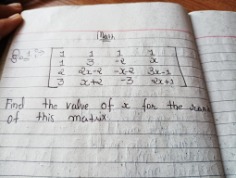 Math
1 1 1 1
1 3 -2 x
2 2x-2 -x-2 3x-1
3 x+2 -3 2x+1
Find the value of x for the
of this matrix